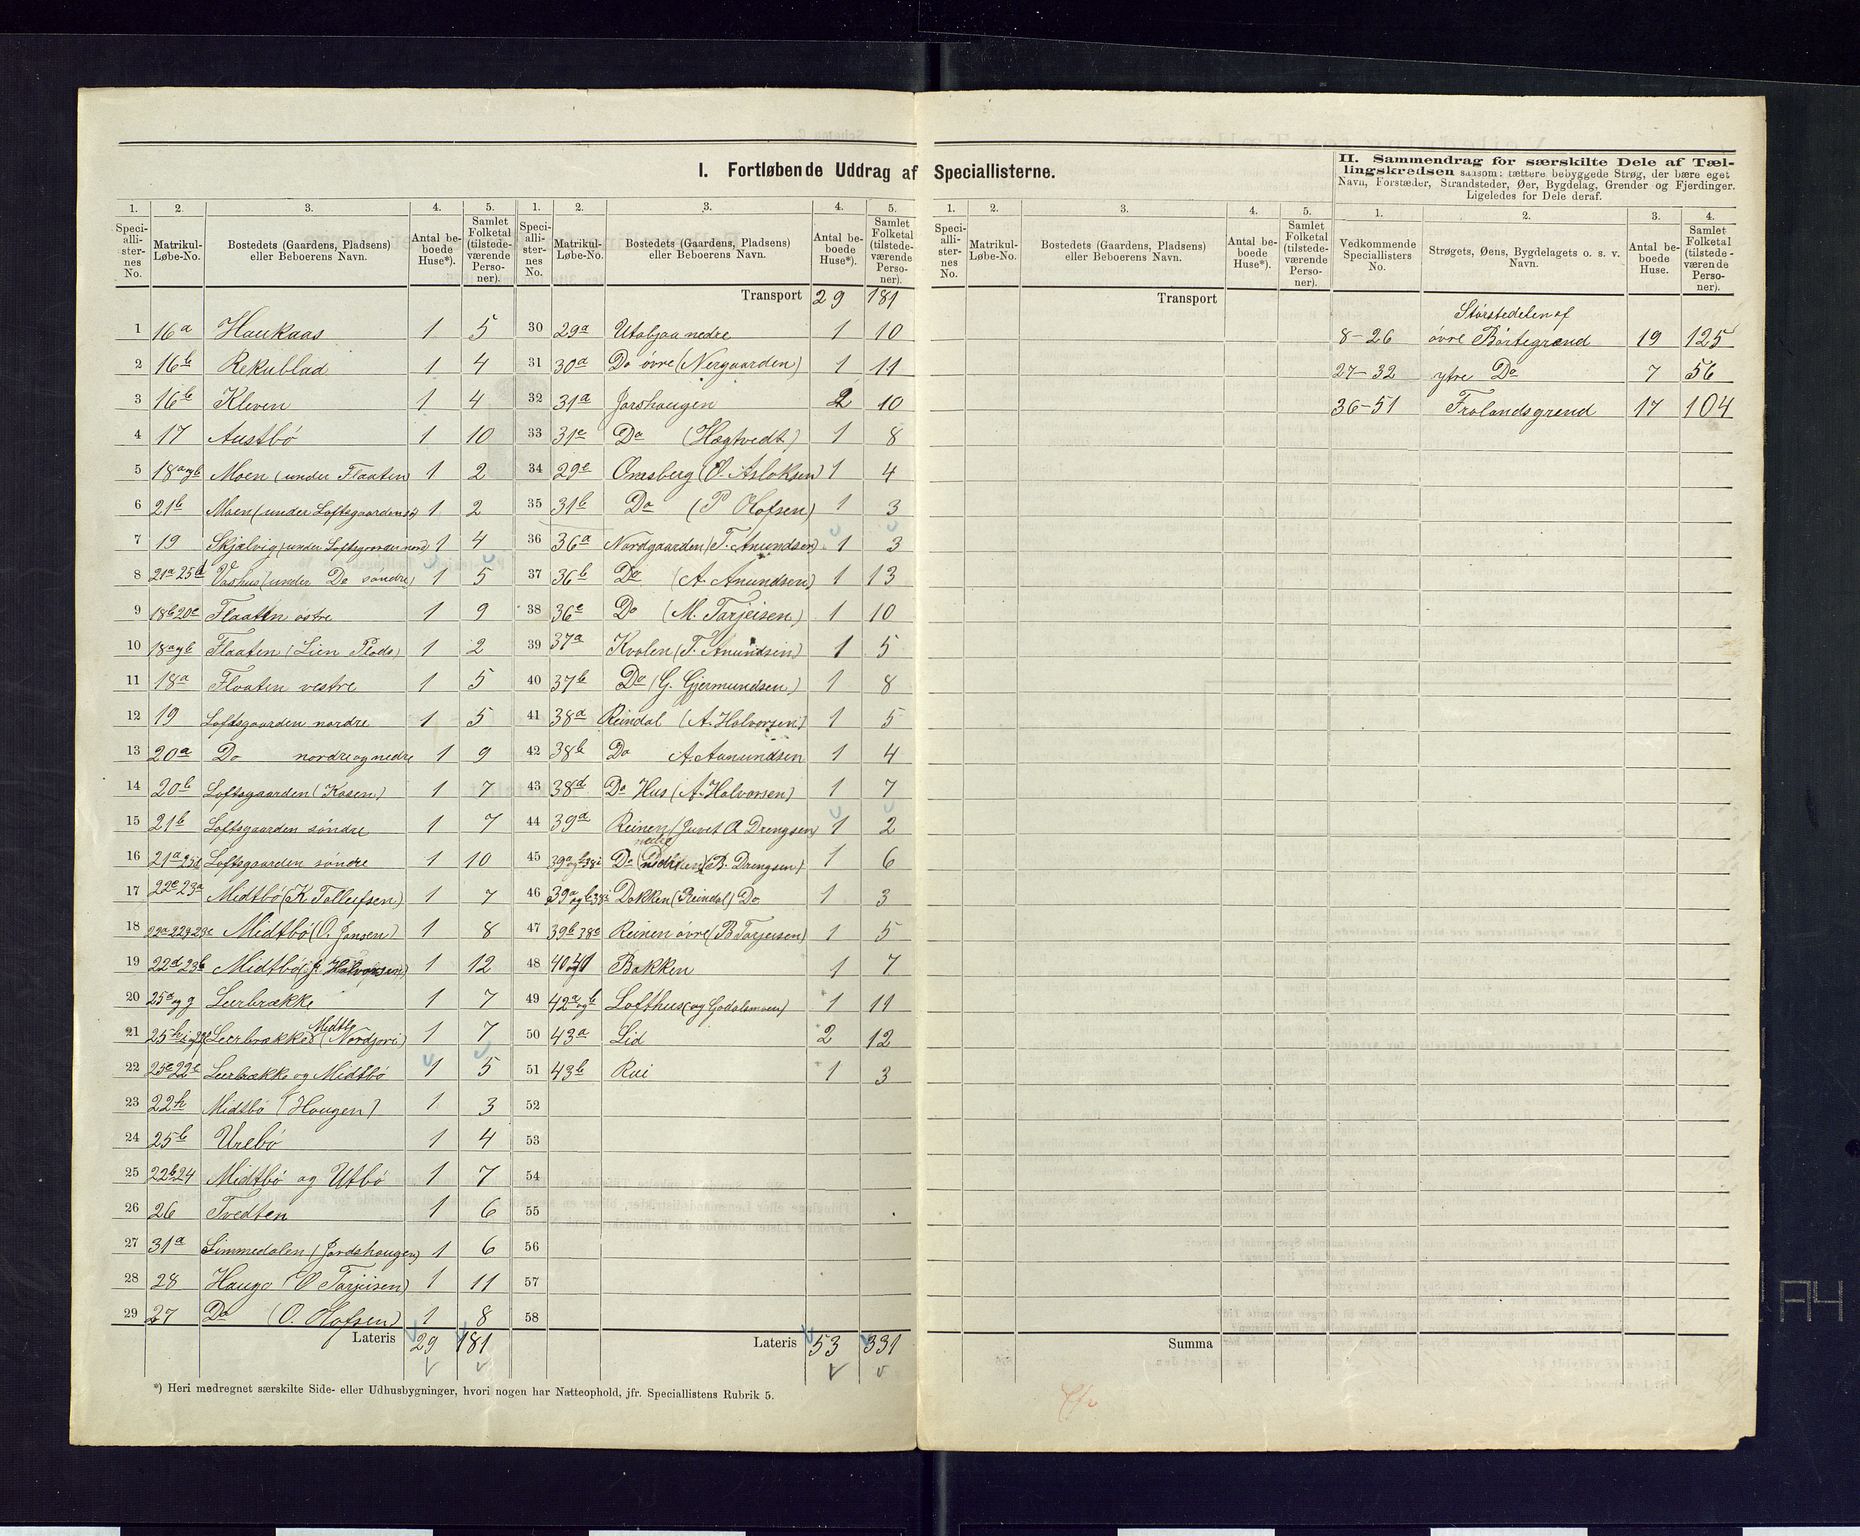 I. Fortløbende Uddrag af Speciallisterne.
1. 2. 3. 4. 5.
Speciallisternes No. Matrikul-Løbe-No. Bostedets (Gaardens, Pladsens) eller Beboerens Navn. Antal beboede Huse*). Samlet Folketal (tilstedeværende Personer).
1 16a Haukaas 1 5
2 16b Rekublad 1 4
3 16b Kleven 1 4
4 17 Austbö 1 10
5 18a og b Moen (under Flaaten) 1 2
6 21b Moen (under Loftsgaarden sö) 1 2
7 19 Skjælvig (under Loftsgaarden nord) 1 4
8 21a 25d Vashus (under Do søndre) 1 5
9 18b 20c Flaaten östre 1 9
10 18a og b Flaaten (Lien Plads) 1 2
11 18a Flaaten vestre 1 5
12 19 Loftsgaarden nordre 1 5
13 20a Do nordre og nedre 1 9
14 20b Loftsgaarden (Kasen) 1 7
15 21b Loftsgaarden søndre 1 7
16 21a 25d Loftsgaarden søndre 1 10
17 22c 23a Midtbö (K Tollefsen) 1 7
18 22a 22g 23c Midtbö (O. Jansen) 1 8
19 22d 23b Midtbö (J. Halvorsen) 1 12
20 25a og g Leirbrække 1 7
21 Leirbrække Midtbö (Nordgori) 1 7
22 25c 22e Leirbrække og Midtbö 1 5
23 22h Midtbö (Haugen) 1 3
24 25b Urebö 1 4
25 22b 24 Midtbö og Utbö 1 7
26 26 Tvedten 1 6
27 31a Simmedalen (Jordshaugen) 1 6
28 28 Haugo (O Tarjeisen) 1 11
29 27 Do (O. Hofsen) 1 8
Lateris 29 181
*) Heri medregnet særskilte Side- eller Udhusbygninger, hvori nogen har Natteophold, jfr. Speciallistens Rubrik 5.
1. 2. 3. 4. 5.
Speciallisternes No. Matrikul-Løbe-No. Bostedets (Gaardens, Pladsens) eller Beboerens Navn. Antal beboede Huse*). Samlet Folketal (tilstedeværende Personer).
Transport 29 181
30 29a Utabjaa nedre 1 10
31 30a Do övre (Nergaarden) 1 11
32 31a Jorshaugen 2 10
33 31c Do (Hægtvedt) 1 8
34 29c Omsberg (O. Asloksen) 1 4
35 31b Do (P Olofsen) 1 3
36 36a Nordgaarden (T. Anundsen) 1 3
37 36b Do (A. Anundsen) 1 13
38 36c Do (M. Tarjeisen) 1 10
39 37a Kvalen (T. Anundsen) 1 5
40 37b Do (G. Gjermundsen) 1 8
41 38a Reindal (A. Halvorsen) 1 5
42 38b Do A. Aanundsen 1 4
43 38d Do Hus (A. Halvorsen) 1 7
44 39a Reinen (Juvet A Drengsen) 1 2
45 39a og b 38i Do nedre (B. Drengsen) 1 6
46 39a og b 38i Dokken (Reindal) Do 1 3
47 39b 38c Reinen övre (B Tarjeisen) 1 5
48 40 og 41 Bakken 1 7
49 42a og b Lofthus (og Godalsmoen) 1 11
50 43a Lid 2 12
51 43b Rui 1 3
52
53
54
55
56
57
58
Lateris 53 331
1. 2. 3. 4. 5.
Speciallisternes No. Matrikul-Løbe-No. Bostedets (Gaardens, Pladsens) eller Beboerens Navn. Antal beboede Huse*). Samlet Folketal (tilstedeværende Personer).
Transport
Summa
II. Sammendrag for særskilte Dele af Tællingskredsen saasom: tættere bebyggede Strøg, der bære eget
Navn, Forstæder, Strandsteder, Øer, Bygdelag, Grender og Fjerdinger.
Ligeledes for Dele deraf.
1. 2. 3. 4.
Vedkommende Speciallisters No. Strøgets, Øens, Bygdelagets o. s. v. Navn. Antal beboede Huse. Samlet Folketal (tilstedeværende Personer).
Störstedelen af
8-26 övre Börtegrænd 19 125
27-32 ytre Do 7 56
36-51 Frolandsgrend 17 104